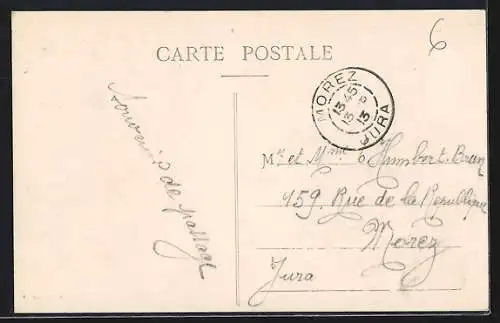 CARTE POSTALE
6
MOREZ
JURA
13 45
13
Souvenir de passage
Mr et Mme Humbert-Brun
159 Rue de la République
Morez
Jura